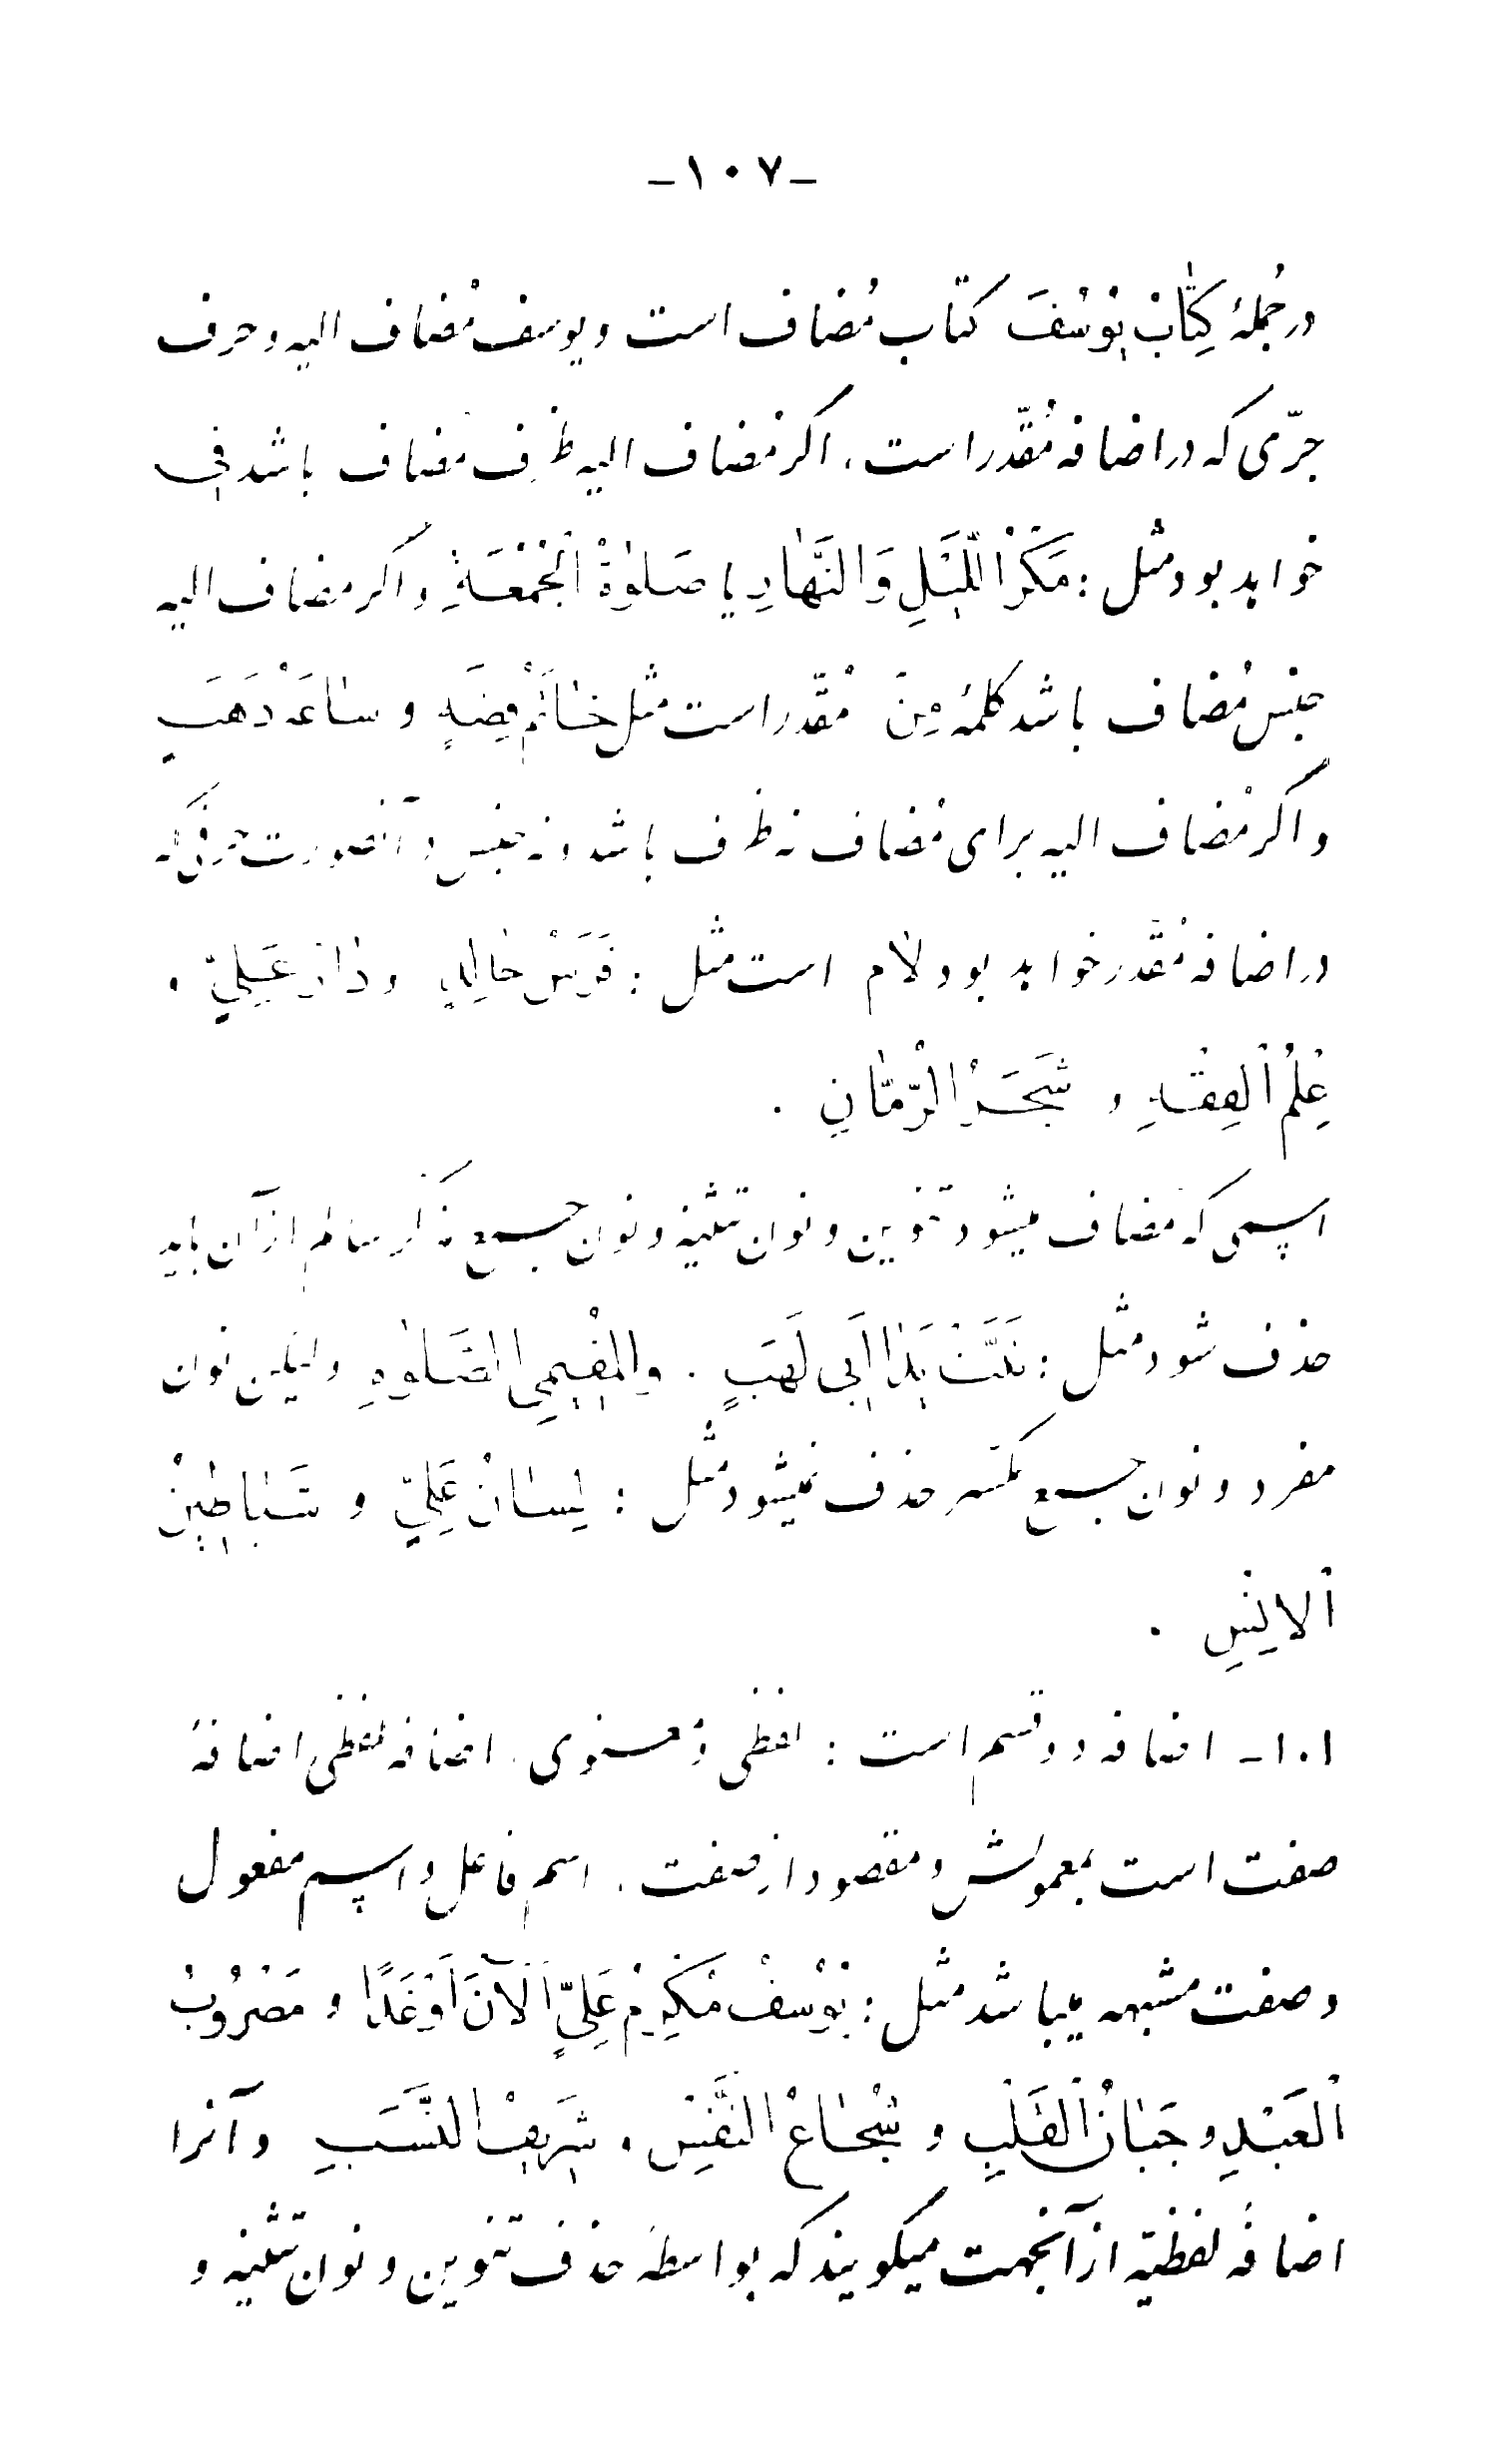 -۱۰۷-
در جُملهٔ كِتٰابُ يُوسُفَ کتاب مُضاف است و یوسف مُضاف الیه و حرف
جرّی که در اضافه مُقدّر است، اکر مُضاف الیه ظرف مُضاف باشد فی
خواهد بود مثل : مَكْرُ اللَّيْلِ وَالنَّهٰارِ یا صَلٰوةُ الْجُمْعَةِ و اکر مضاف الیه
جنس مُضاف باشد کلمهٔ مِنْ مُقدّر است مثل خٰاتَمُ فِضَةٍ و سٰاعَةُ ذَهَبٍ
و اکر مُضاف الیه برای مُضاف نه ظرف باشد و نه جنس در آنصورت حرفی که
در اضافه مُقدر خواهد بود لام است مثل : فَرَسُ خٰالِدٍ و دٰارُ عَلِيٍّ .
عِلْمُ الْفِقْهِ و شَجَرُ الرُّمّٰانِ .
اسمی که مُضاف میشود تنوین و نون تثنیه و نون جمع مذکر سالم از آن باید
حذف شود مثل : تَبَّتْ يَدٰا اَبى لَهَبٍ . والْمُقِيمِى الصَّلٰوةِ ولیکن نون
مفرد و نون جمع مکسر حذف نمیشود مثل : لِسٰانُ عَلِيٍّ و شَيٰاطِينُ
الْاِنْسِ .
۱۰۱- اضافه دو قسم است : لفظی و معنوی . اضافه لفظی اضافهٔ
صفت است بمعمولش و مقصود از صفت . اسم فاعل و اسم مفعول
و صفت مشبهه میباشد مثل : يُوْسُفُ مُكْرِمُ عَلِيٍّ اَلْآنَ اَوْ غَدًا و مَضْرُوبُ
الْعَبْدِ و جَبٰانُ الْقَلْبِ و شُجٰاعُ النَّفْسِ . شَرِيفُ النَّسَبِ و آنرا
اضافهٔ لفظیّه از آنجهت میکویند که بواسطهٔ حذف تنوین و نون تثنیه و